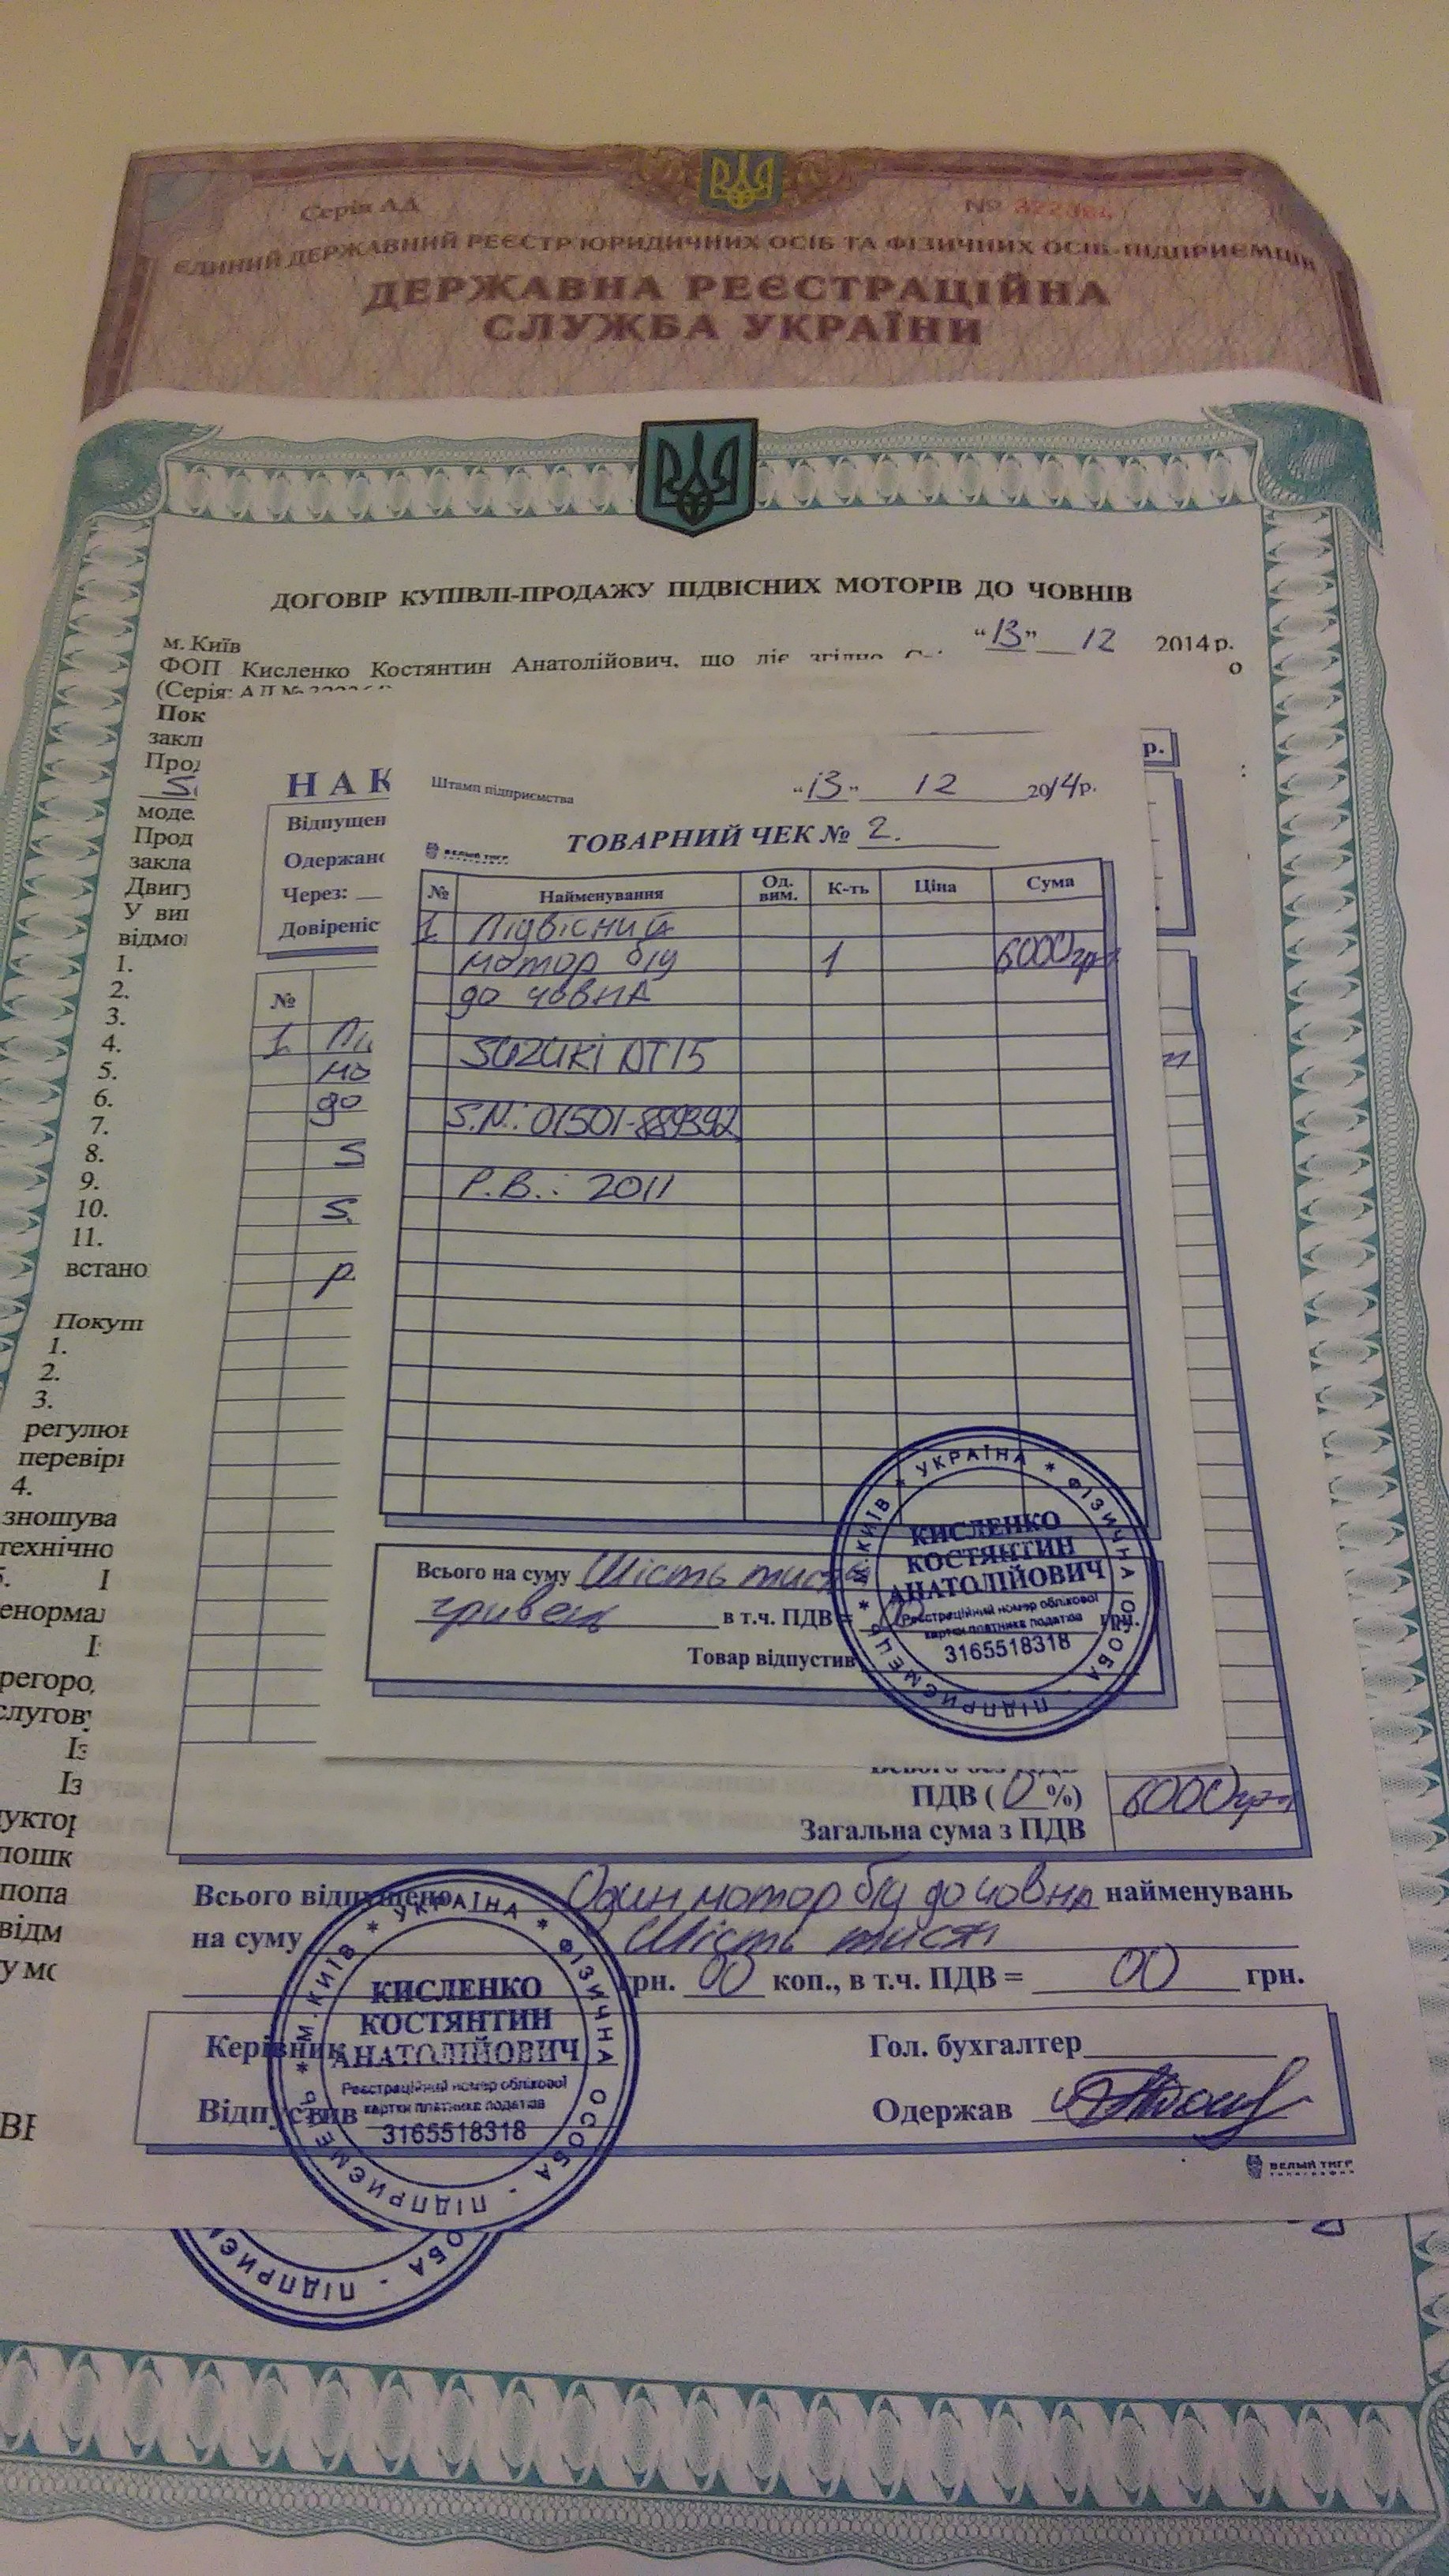 Серія АД № 32236
ЄДИНИЙ ДЕРЖАВНИЙ РЕЄСТР ЮРИДИЧНИХ ОСІБ ТА ФІЗИЧНИХ ОСІБ-ПІДПРИЄМЦІВ
ДЕРЖАВНА РЕЄСТРАЦІЙНА
СЛУЖБА УКРАЇНИ
ДОГОВІР КУПІВЛІ-ПРОДАЖУ ПІДВІСНИХ МОТОРІВ ДО ЧОВНІВ
м. Київ "13" 12 2014 р.
ФОП Кисленко Костянтин Анатолійович, що діє згідно
(Серія: АД №
Пок
закл
Прод
моде
Прод
закла
Двигу
У вип
відмо
1.
2.
3.
4.
5.
6.
7.
8.
9.
10.
11.
встано
Покуп
1.
2.
3.
регулюв
перевірк
4.
зношува
технічно
5. І
ненормал
Із
регоро
слугов
Із
Із
дуктор
пошк
попа
відм
у мо
НАК
р.
Відпущен
Одержано
Через:
Довіреніс
№
1
мо
до
S
S.
Р.
Штамп підприємства "13" 12 2014р.
ТОВАРНИЙ ЧЕК № 2.
БЕЛЫЙ ТИГР
№ Найменування Од. вим. К-ть Ціна Сума
1 Підвісний
мотор б/у 1 6000грн
до човна
SUZUKI DT15
S.N.: 01501-889392
Р.В.: 2011
Всього на суму Шість тисяч
гривень в т.ч. ПДВ = грн.
Товар відпустив
* УКРАЇНА * ФІЗИЧНА ОСОБА - ПІДПРИЄМЕЦЬ * М.КИЇВ
КИСЛЕНКО
КОСТЯНТИН
АНАТОЛІЙОВИЧ
Реєстраційний номер облікової
картки платника податків
3165518318
Всього без ПДВ
ПДВ ( 0 %) 6000грн
Загальна сума з ПДВ
Всього відпущено Один мотор б/у до човна найменувань
на суму Шість тисяч
грн. 00 коп., в т.ч. ПДВ = 00 грн.
Керівник Гол. бухгалтер
Відпустив Одержав
* УКРАЇНА * ФІЗИЧНА ОСОБА - ПІДПРИЄМЕЦЬ * М.КИЇВ
КИСЛЕНКО
КОСТЯНТИН
АНАТОЛІЙОВИЧ
Реєстраційний номер облікової
картки платника податків
3165518318
БЕЛЫЙ ТИГР
типография
ОБА - ПІДПРИЄМ